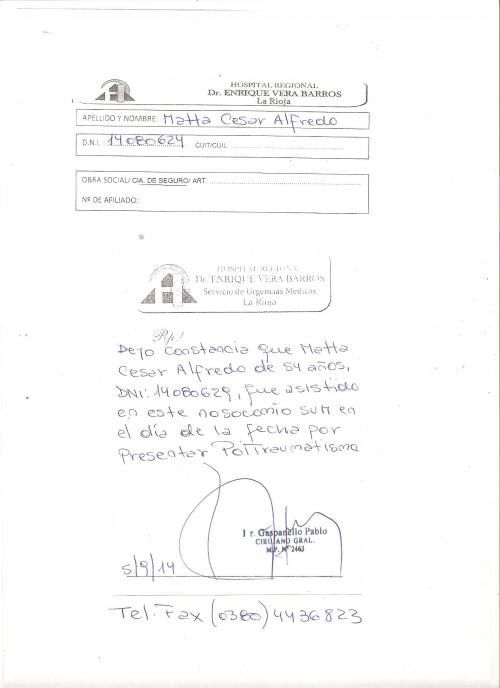 HOSPITAL REGIONAL
Dr. ENRIQUE VERA BARROS
La Rioja
APELLIDO Y NOMBRE: Matta Cesar Alfredo
D.N.I. : 14080624 CUIT/CUIL:
OBRA SOCIAL/ CIA. DE SEGURO/ ART:
Nº DE AFILIADO:
HOSPITAL REGIONAL
Dr. ENRIQUE VERA BARROS
Servicio de Urgencias Medicas
La Rioja
Rp./
Dejo constancia que Matta
Cesar Alfredo de 54 años,
DNI: 14080629, fue asistido
en este nosocomio SUM en
el día de la fecha por
presentar PoliTraumatismo
Gaspanello Pablo
CIRUJANO GRAL.
M.P. Nº 2463
5/9/14
Tel. Fax (0380) 4436823